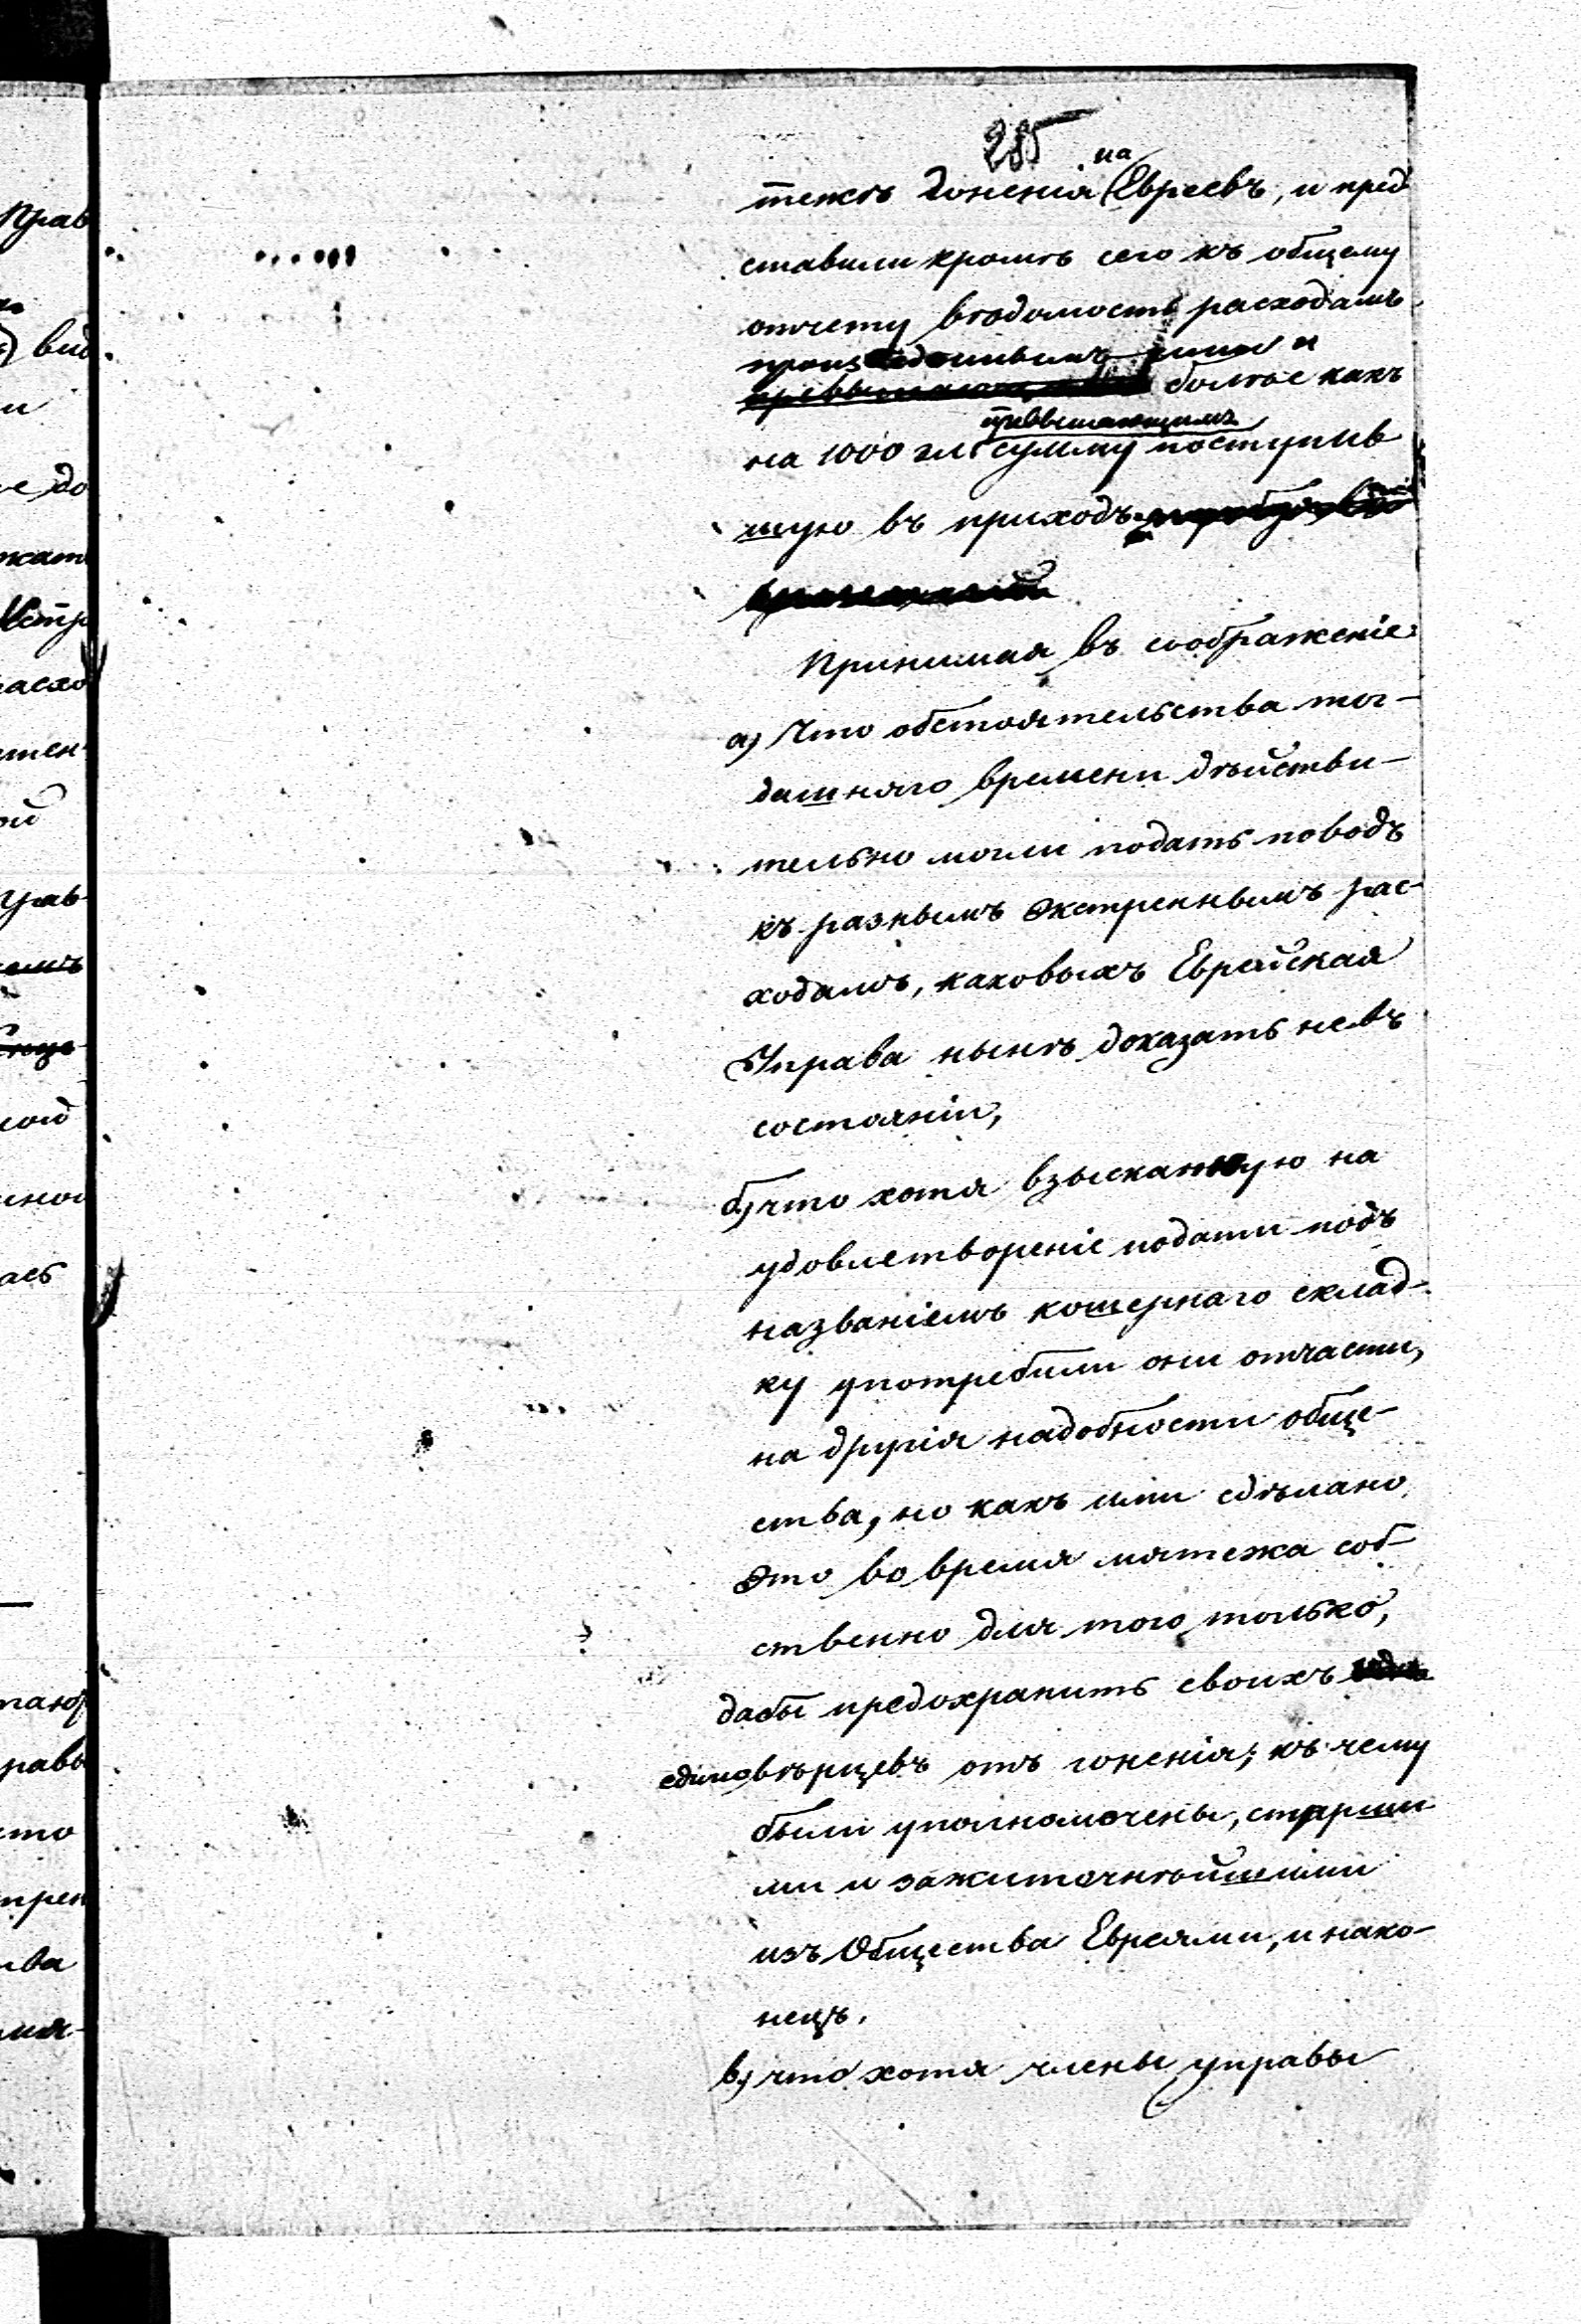 285
тежѣ гоненія на Евреевъ, и пред
ставили кромѣ сего къ общему
отчету вѣдомость расходамъ
произведеннымъ ими и
превышающимъ болѣе какъ
превышающимъ
на 1000 зл: сумму поступив
шую въ приходъ
Принимая въ соображеніе:
а) Что обстоятельства тог-
дашняго времени дѣйстви-
тельно могли подать поводъ
къ разнымъ экстреннымъ рас-
ходамъ, каковыхъ Еврейская
Управа нынѣ доказать не въ
состояніи,
б) что хотя взысканную на
удовлетвореніе подати подъ
названіемъ кошернаго склад-
ку употребили они отчасти,
на другія надобности обще-
ства, но какъ ими сдѣлано
это во время мятежа соб-
ственно для того только,
дабы предохранить своихъ
единовѣрцевъ отъ гоненія; къ чему
были уполномочены, старши
ми и зажиточнѣйшими
изъ Общества Евреями, и нако-
нецъ.
в) что хотя члены управы
Прав
вид
и
е до
жат
расхо
мен
ой
Прав
емъ
ной
ась
прав
что
трен
тва